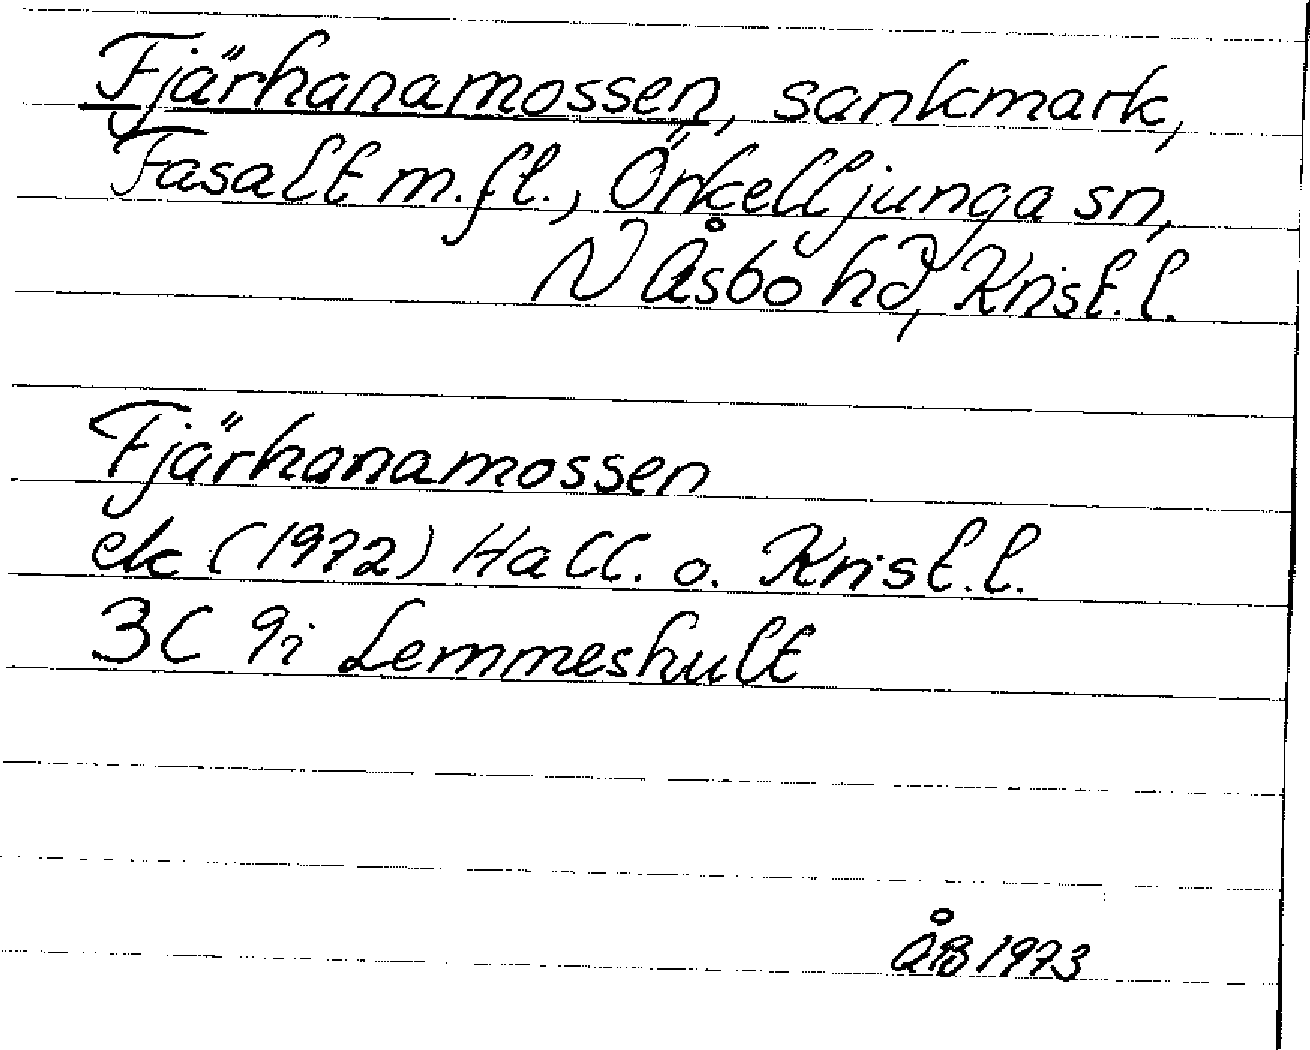 Fjärhanamossen, sankmark,
Fasalt m.fl., Örkelljunga sn,
N Åsbo hd, Krist.l.
Fjärhanamossen
ek (1972) Hall. o. Krist.l.
3C 9i Lemmeshult
ÅB 1973